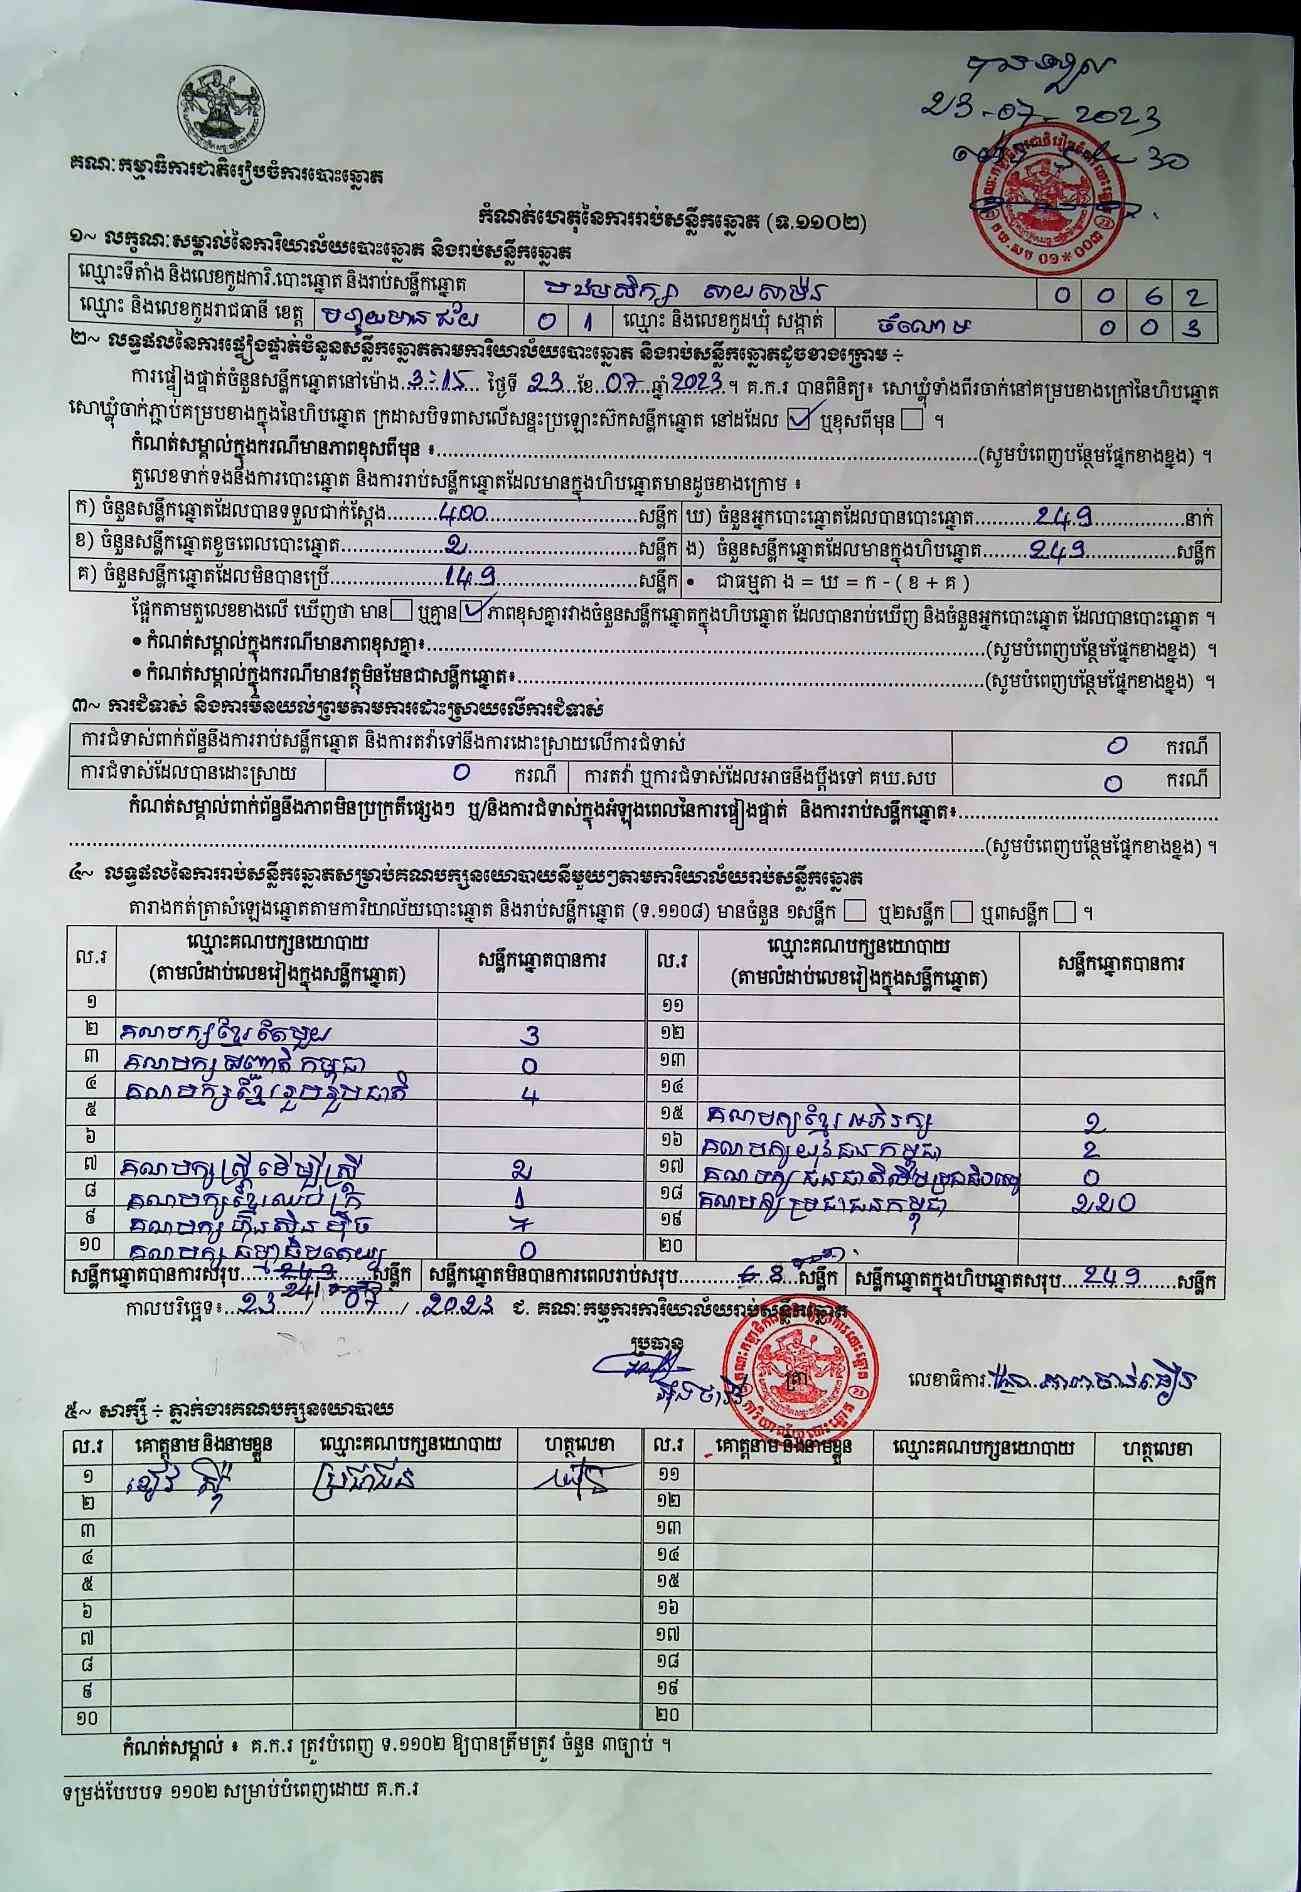 បានទទួល
23-07-2023
គណៈកម្មាធិការជាតិរៀបចំការបោះឆ្នោត
កំណត់ហេតុនៃការរាប់សន្លឹកឆ្នោត (ទ.១១០២)
១~ លក្ខណៈសម្គាល់នៃការិយាល័យបោះឆ្នោត និងរាប់សន្លឹកឆ្នោត
ឈ្មោះទីតាំង និងលេខកូដការិ.បោះឆ្នោត និងរាប់សន្លឹកឆ្នោត មឋមសិក្សា សាយសាម៉ន 0 0 6 2
ឈ្មោះ និងលេខកូដរាជធានី ខេត្ត បន្ទាយមានជ័យ 0 1 ឈ្មោះ និងលេខកូដឃុំ សង្កាត់ ចំណោម 0 0 3
២~ លទ្ធផលនៃការផ្ទៀងផ្ទាត់ចំនួនសន្លឹកឆ្នោតតាមការិយាល័យបោះឆ្នោត និងរាប់សន្លឹកឆ្នោតដូចខាងក្រោម ÷
ការផ្ទៀងផ្ទាត់ចំនួនសន្លឹកឆ្នោតនៅម៉ោង 3:15 ថ្ងៃទី 23 ខែ 07 ឆ្នាំ 2023 ។ គ.ក.រ បានពិនិត្យ៖ សោឃ្លុំទាំងពីរចាក់នៅគម្របខាងក្រៅនៃហិបឆ្នោត
សោឃ្លុំចាក់ភ្ជាប់គម្របខាងក្នុងនៃហិបឆ្នោត ក្រដាសបិទពាសលើសន្ទះប្រឡោះស៊កសន្លឹកឆ្នោត នៅដដែល ☑ ឬខុសពីមុន ☐ ។
កំណត់សម្គាល់ក្នុងករណីមានភាពខុសពីមុន ៖ (សូមបំពេញបន្ថែមផ្នែកខាងខ្នង) ។
តួលេខទាក់ទងនឹងការបោះឆ្នោត និងការរាប់សន្លឹកឆ្នោតដែលមានក្នុងហិបឆ្នោតមានដូចខាងក្រោម ៖
ក) ចំនួនសន្លឹកឆ្នោតដែលបានទទួលជាក់ស្តែង 400 សន្លឹក ឃ) ចំនួនអ្នកបោះឆ្នោតដែលបានបោះឆ្នោត 249 នាក់
ខ) ចំនួនសន្លឹកឆ្នោតខូចពេលបោះឆ្នោត 2 សន្លឹក ង) ចំនួនសន្លឹកឆ្នោតដែលមានក្នុងហិបឆ្នោត 249 សន្លឹក
គ) ចំនួនសន្លឹកឆ្នោតដែលមិនបានប្រើ 149 សន្លឹក • ជាធម្មតា ង = ឃ = ក - ( ខ + គ )
ផ្អែកតាមតួលេខខាងលើ ឃើញថា មាន ☐ ឬគ្មាន ☑ ភាពខុសគ្នារវាងចំនួនសន្លឹកឆ្នោតក្នុងហិបឆ្នោត ដែលបានរាប់ឃើញ និងចំនួនអ្នកបោះឆ្នោត ដែលបានបោះឆ្នោត ។
• កំណត់សម្គាល់ក្នុងករណីមានភាពខុសគ្នា៖ (សូមបំពេញបន្ថែមផ្នែកខាងខ្នង) ។
• កំណត់សម្គាល់ក្នុងករណីមានវត្ថុមិនមែនជាសន្លឹកឆ្នោត៖ (សូមបំពេញបន្ថែមផ្នែកខាងខ្នង) ។
៣~ ការជំទាស់ និងការមិនយល់ព្រមតាមការដោះស្រាយលើការជំទាស់
ការជំទាស់ពាក់ព័ន្ធនឹងការរាប់សន្លឹកឆ្នោត និងការតវ៉ាទៅនឹងការដោះស្រាយលើការជំទាស់ 0 ករណី
ការជំទាស់ដែលបានដោះស្រាយ 0 ករណី ការតវ៉ា ឬការជំទាស់ដែលអាចនឹងប្តឹងទៅ គឃ.សប 0 ករណី
កំណត់សម្គាល់ពាក់ព័ន្ធនឹងភាពមិនប្រក្រតីផ្សេងៗ ឬ/និងការជំទាស់ក្នុងអំឡុងពេលនៃការផ្ទៀងផ្ទាត់ និងការរាប់សន្លឹកឆ្នោត៖
(សូមបំពេញបន្ថែមផ្នែកខាងខ្នង) ។
៤~ លទ្ធផលនៃការរាប់សន្លឹកឆ្នោតសម្រាប់គណបក្សនយោបាយនីមួយៗតាមការិយាល័យរាប់សន្លឹកឆ្នោត
តារាងកត់ត្រាសំឡេងឆ្នោតតាមការិយាល័យបោះឆ្នោត និងរាប់សន្លឹកឆ្នោត (ទ.១១០៨) មានចំនួន ១សន្លឹក ☐ ឬ២សន្លឹក ☐ ឬ៣សន្លឹក ☐ ។
ល.រ ឈ្មោះគណបក្សនយោបាយ (តាមលំដាប់លេខរៀងក្នុងសន្លឹកឆ្នោត) សន្លឹកឆ្នោតបានការ ល.រ ឈ្មោះគណបក្សនយោបាយ (តាមលំដាប់លេខរៀងក្នុងសន្លឹកឆ្នោត) សន្លឹកឆ្នោតបានការ
១ ១១
២ គណបក្សខ្មែរតែមួយ 3 ១២
៣ គណបក្សសញ្ជាតិកម្ពុជា 0 ១៣
៤ គណបក្សខ្មែររួបរួមជាតិ 4 ១៤
៥ ១៥ គណបក្សខ្មែរអភិរក្ស 2
៦ ១៦ គណបក្សយុវជនកម្ពុជា 2
៧ គណបក្សស្ត្រីដើម្បីស្ត្រី 2 ១៧ គណបក្សជនជាតិដើមប្រជាធិបតេយ្យ 0
៨ គណបក្សខ្មែរឈប់ក្រ 1 ១៨ គណបក្សប្រជាជនកម្ពុជា 220
៩ គណបក្សហ៊្វុនស៊ិនប៉ិច 7 ១៩
១០ គណបក្សធម្មាធិបតេយ្យ 0 ២០
សន្លឹកឆ្នោតបានការសរុប 241 សន្លឹក សន្លឹកឆ្នោតមិនបានការពេលរាប់សរុប 8 សន្លឹក សន្លឹកឆ្នោតក្នុងហិបឆ្នោតសរុប 249 សន្លឹក
កាលបរិច្ឆេទ៖ 23 / 07 / 2023 ជ. គណៈកម្មការការិយាល័យរាប់សន្លឹកឆ្នោត
ប្រធាន
ត្រា លេខាធិការ
៥~ សាក្សី ÷ ភ្នាក់ងារគណបក្សនយោបាយ
ល.រ គោត្តនាម និងនាមខ្លួន ឈ្មោះគណបក្សនយោបាយ ហត្ថលេខា ល.រ គោត្តនាម និងនាមខ្លួន ឈ្មោះគណបក្សនយោបាយ ហត្ថលេខា
១ ប្រជាជន ១១
២ ១២
៣ ១៣
៤ ១៤
៥ ១៥
៦ ១៦
៧ ១៧
៨ ១៨
៩ ១៩
១០ ២០
កំណត់សម្គាល់ ៖ គ.ក.រ ត្រូវបំពេញ ទ.១១០២ ឱ្យបានត្រឹមត្រូវ ចំនួន ៣ច្បាប់ ។
ទម្រង់បែបបទ ១១០២ សម្រាប់បំពេញដោយ គ.ក.រ